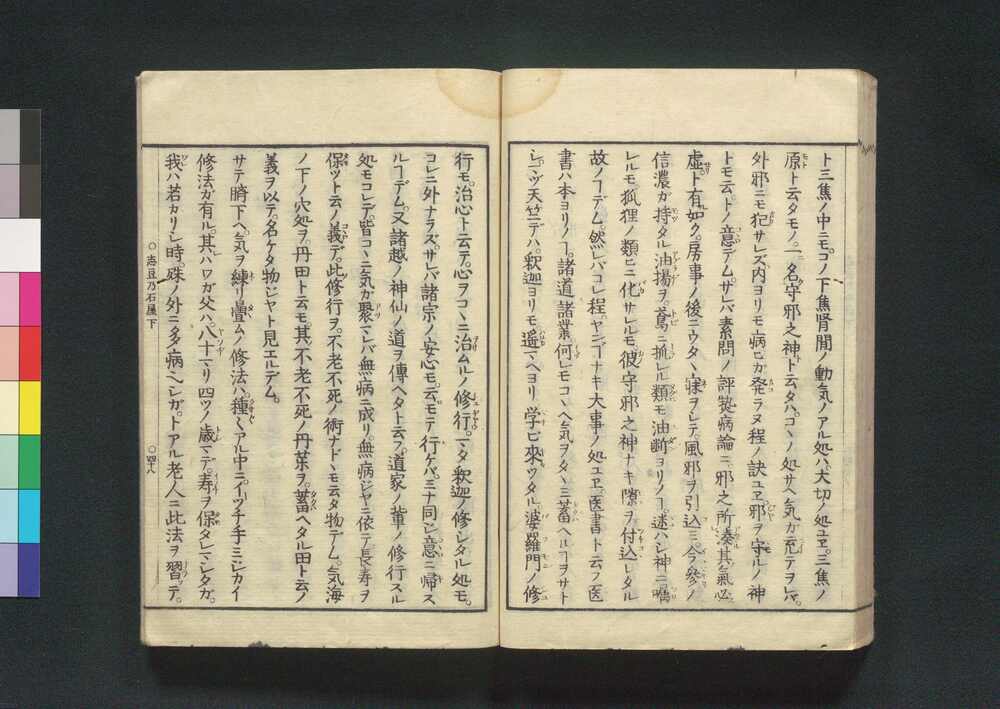 ト三焦ノ中ニモ。コノ下焦腎間ノ動気ノアル処ハ。大切ノ処ユヱ。三焦ノ
原ト云タモノ。一名守邪之神ト云タハ。コヽノ処サヘ気ガ充テヲレバ。
外邪ニモ犯サレズ。内ヨリモ病ヒガ発ラヌ程ノ訣ユヱ。邪ヲ守ルノ神
トモ云。トノ意デム。サレバ素問ノ評熱病論ニ。邪之所湊其氣必
虚ト有如ク。房事ノ後ニウタヽ寐ヲシテ。風邪ヲ引込ミ。今参ノ
信濃ガ持タル油揚ヲ。鳶ニ抓レル類モ。油断ヨリノヿ。迷ハシ神ニ嘱
レルモ。狐狸ノ類ヒニ化サレルモ。彼守邪之神ナキ隙ヲ付込レタル
故ノヿデム。然レバコレ程。ヤンゴナキ大事ノ処ユヱ。医書ト云フ医
書ハ本ヨリノヿ。諸道諸業。何レモコヽヘ気ヲタヽミ蓄ヘルヿヲサト
シヅ。天竺デハ。釈迦ヨリモ遥マヘヨリ。学ビ來ツタル。婆羅門ノ修
行モ。治心ト云テ。心ヲコヽニ治ムルノ修行。マタ釈迦ノ修シタル処モ。
コレニ外ナラズ。サレバ諸宗ノ安心モ。云モテ行ケバ。ミナ同シ意ニ帰ス
ルヿデム。又諸越ノ神仙ノ道ヲ傳ヘタト云フ。道家ノ輩ノ修行スル
処モコレデ。皆コヽニ気ガ聚マレバ無病ニ成リ。無病ジヤニ依テ長寿ヲ
保ツト云ノ義デ。此修行ヲ。不老不死ノ術ナドヽモ云タ物デム。気海
ノ下ノ穴処ヲ。丹田ト云モ。其不老不死ノ丹薬ヲ。蓄ヘタル田ト云ノ
義ヲ以テ。名ケタ物ジヤト見エルデム。
サテ臍下ヘ。気ヲ練リ畳ムノ修法ハ。種々アル中ニ。イツチ手ミジカイ
修法ガ有ル。其ハワガ父ハ。八十マリ四ツノ歳マデ。寿ヲ保タレマシタガ。
我ハ若カリシ時。殊ノ外ニ多病ヘシガ。トアル老人ニ此法ヲ習テ。
○志豆乃石屋下 ○四八